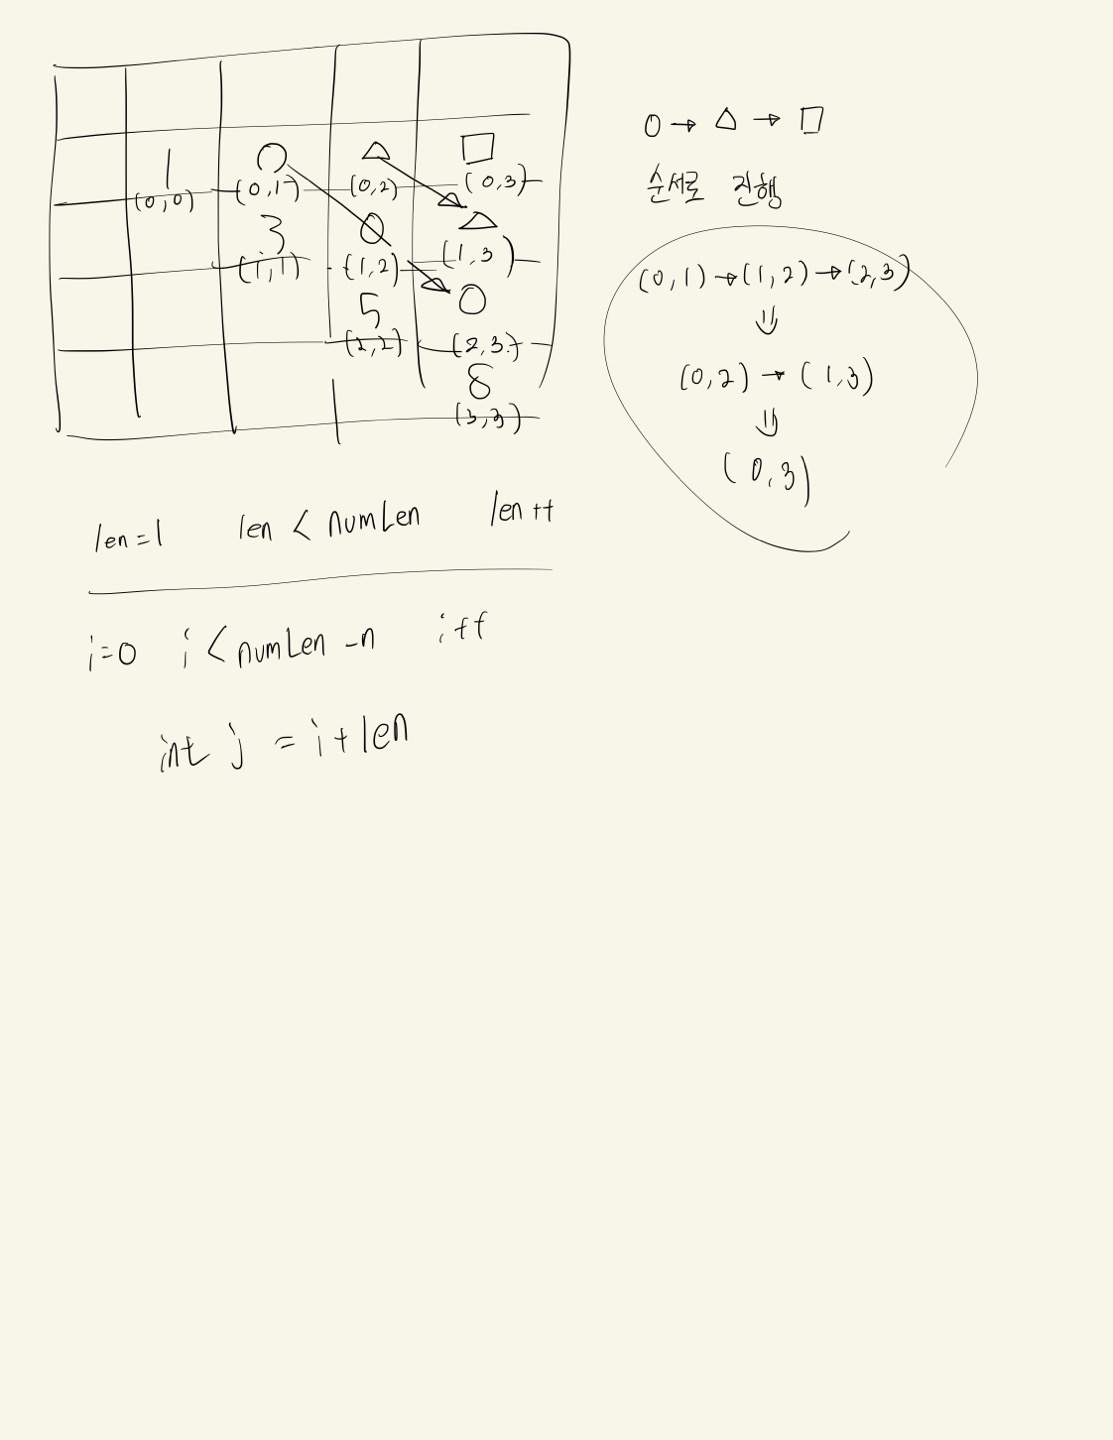 1 ○ △ □
(0,0) (0,1) (0,2) (0,3)
3 ○ △
(1,1) (1,2) (1,3)
5 ○
(2,2) (2,3)
8
(3,3)
○ → △ → □
순서로 진행
(0,1) → (1,2) → (2,3)
⇓
(0,2) → (1,3)
⇓
(0,3)
len=1 len < numLen len++
i=0 i < numLen -n i++
int j = i+len